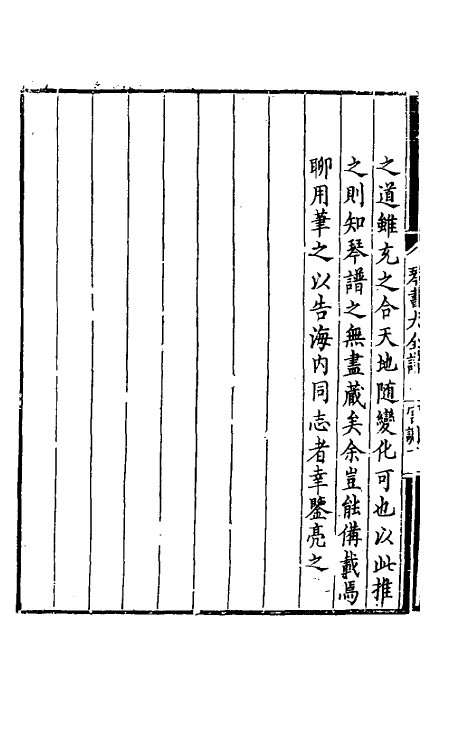 之道雖充之合天地随變化可也以此推
之則知琴譜之無盡藏矣余豈能備載焉
聊用筆之以告海内同志者幸鑒亮之
琴書大全譜
宫調